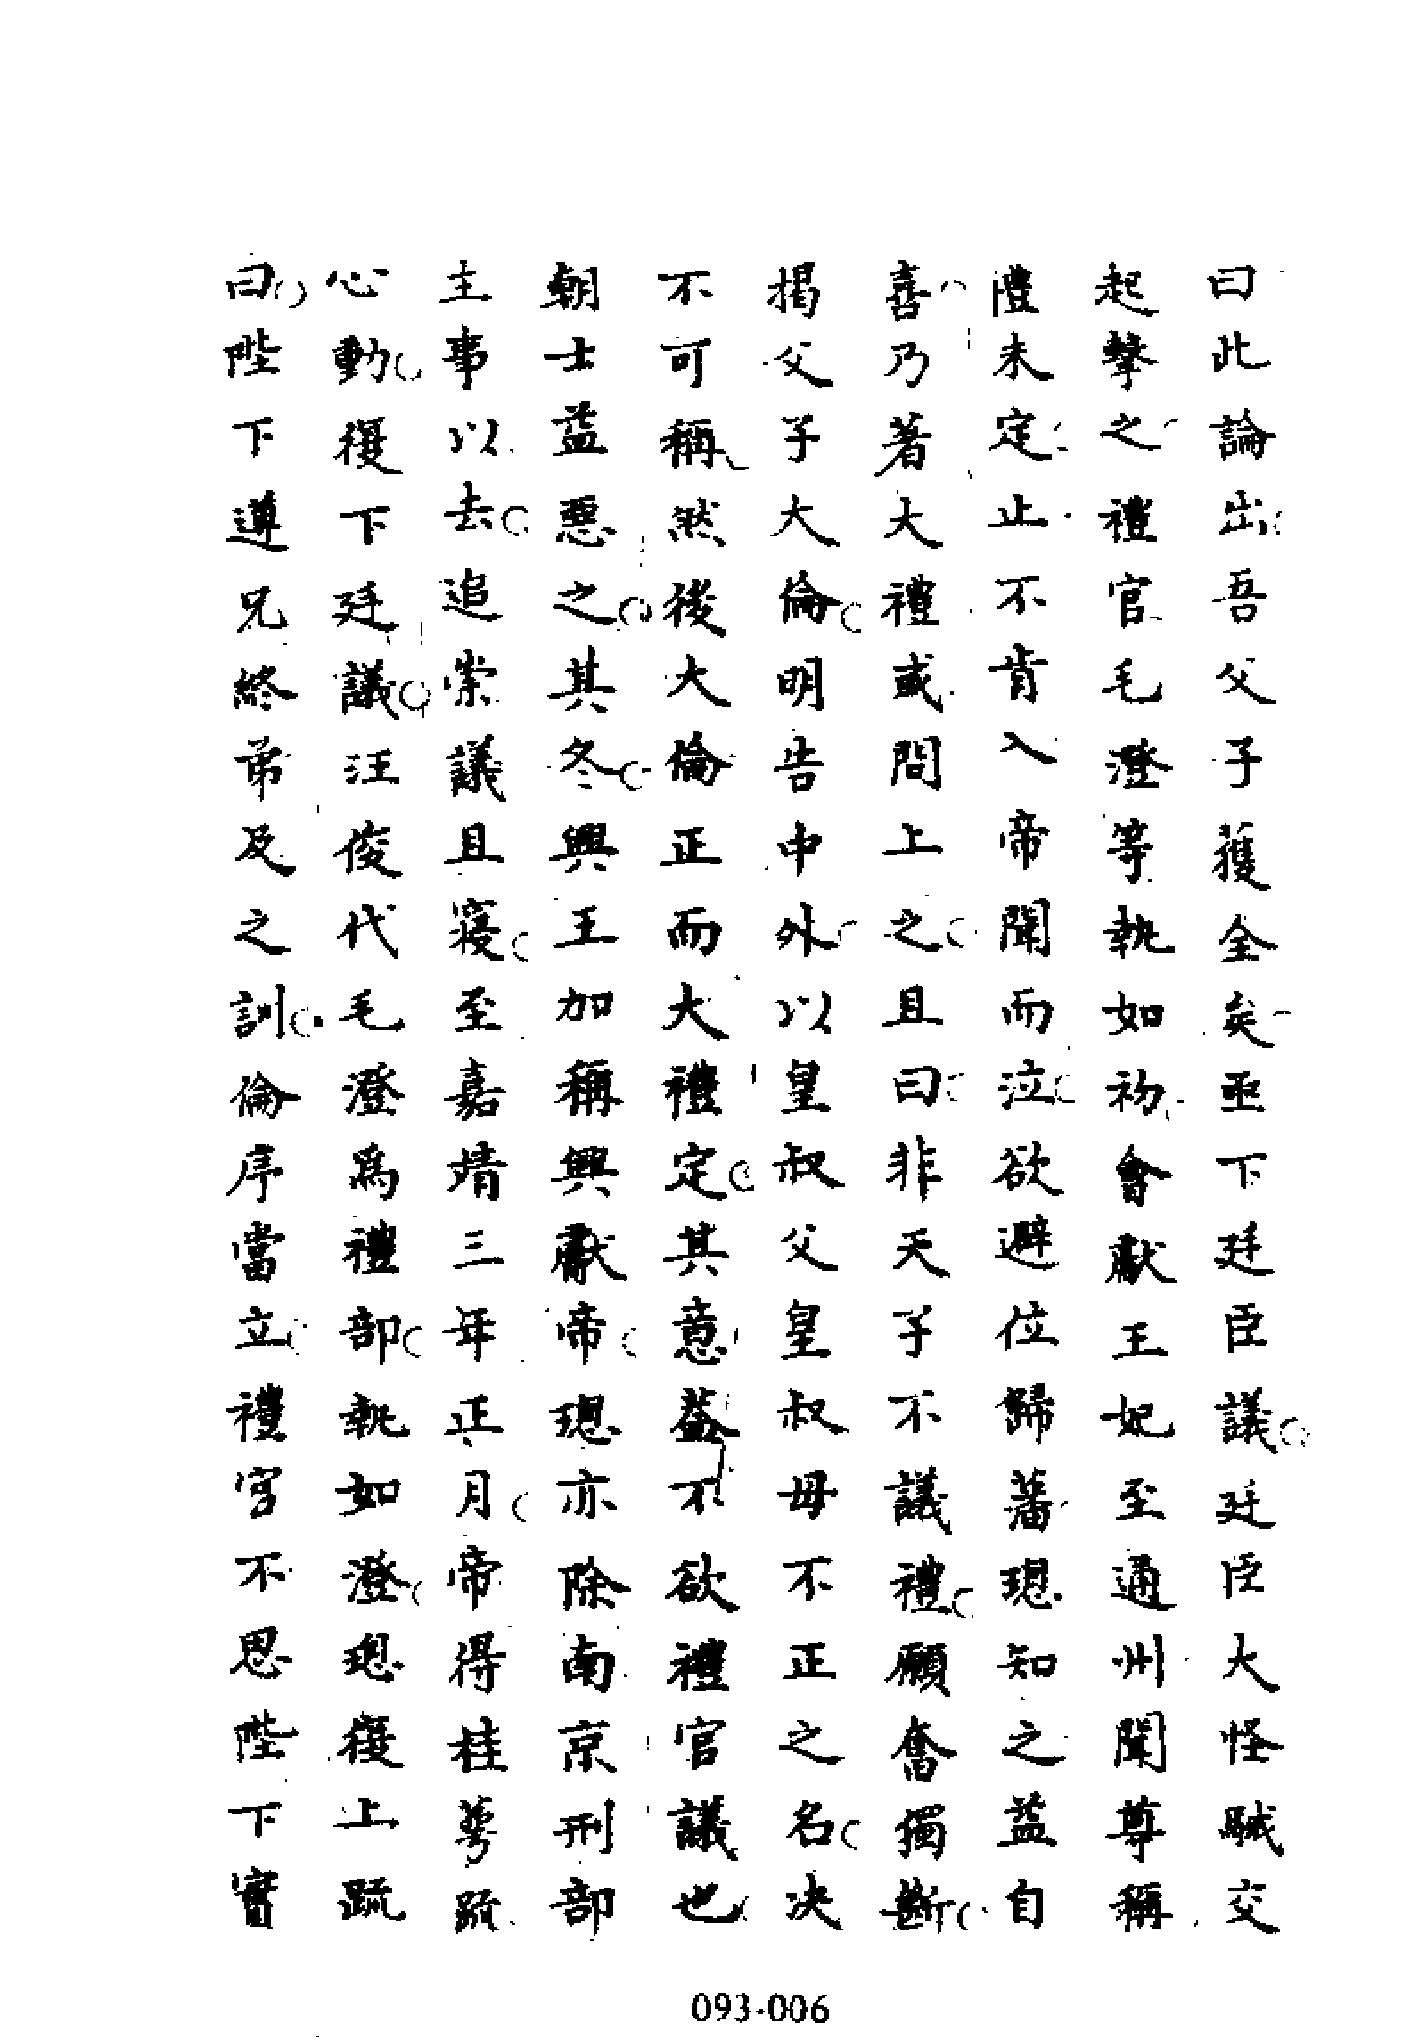 曰此論出吾父子獲全矣亟下廷臣議廷臣大怪駴交
起擊之禮官毛澄等執如初會獻王妃至通州聞尊稱
禮未定止不肯入帝聞而泣欲避位歸藩璁知之益自
喜乃著大禮或問上之且曰非天子不議禮願奮獨斷
揭父子大倫明告中外以皇叔父皇叔母不正之名决
不可稱然後大倫正而大禮定其意葢不欲禮官議也
朝士益惡之其冬興王加稱興獻帝璁亦除南京刑部
主事以去追崇議且寢至嘉靖三年正月帝得桂萼疏
心動復下廷議汪俊代毛澄爲禮部執如澄璁復上疏
曰陛下遵兄終弟及之訓倫序當立禮官不思陛下實
093-006